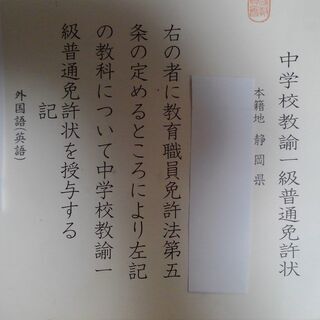 中学校教諭一級普通免許状
本籍地 静岡県
右の者に教育職員免許法第五
条の定めるところにより左記
の教科について中学校教諭一
級普通免許状を授与する
記
外国語(英語)